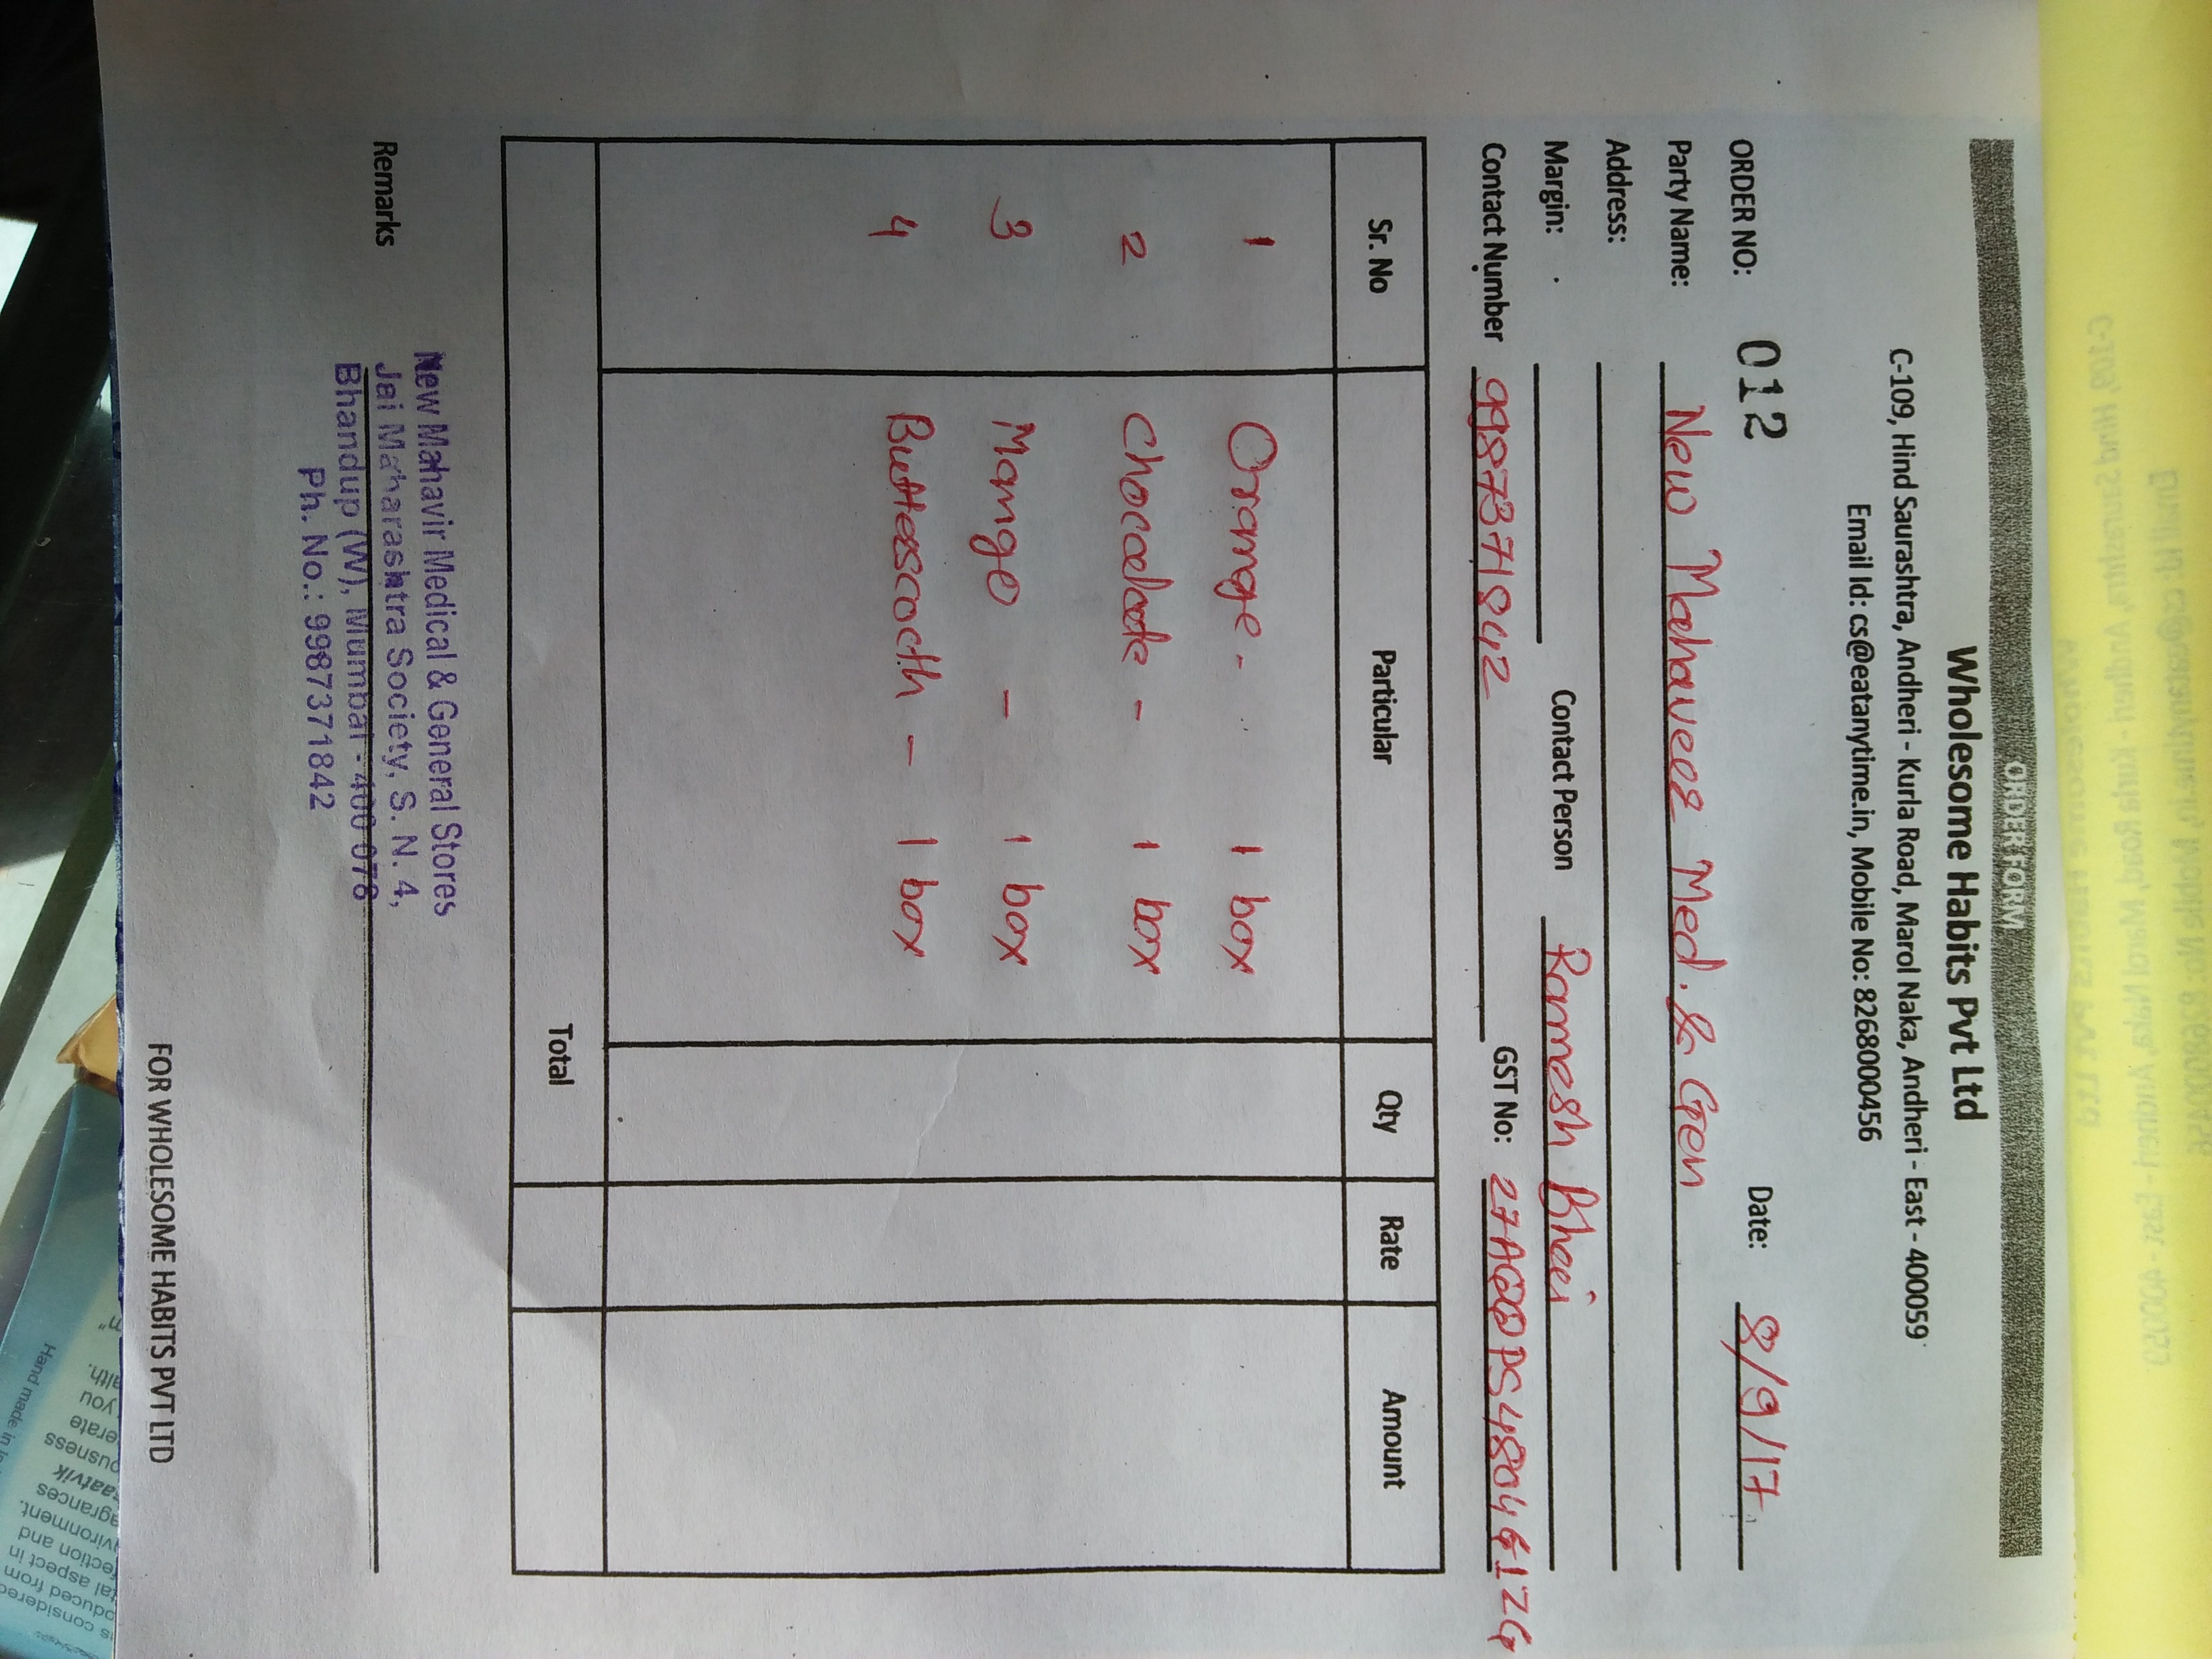 ORDER FORM
Wholesome Habits Pvt Ltd
C-109, Hind Saurashtra, Andheri - Kurla Road, Marol Naka, Andheri - East - 400059
Email Id: cs@eatanytime.in, Mobile No: 8268000456
ORDER NO: 012 Date: 8/9/17
Party Name: New Mahaveer Med. & Gen
Address:
Margin: Contact Person Ramesh Bhai
Contact Number 9987371842 GST No:
Sr. No Particular Qty Rate Amount
1 Orange - 1 box
2 Chocolate - 1 box
3 Mango - 1 box
4 Butterscocth - 1 box
Total
New Mahavir Medical & General Stores
Remarks Jai Maharashtra Society, S. N. 4,
Bhandup (W), Mumbai - 400 078
Ph. No.: 9987371842
FOR WHOLESOME HABITS PVT LTD
Hand made in